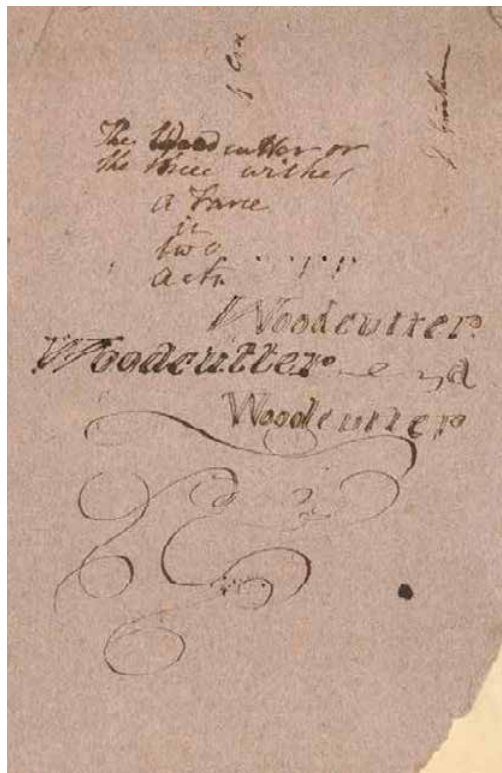 The Woodcutter or
the three wishes
a Farce
in
two
acts
Woodcutter.
Woodcutter
Woodcutter